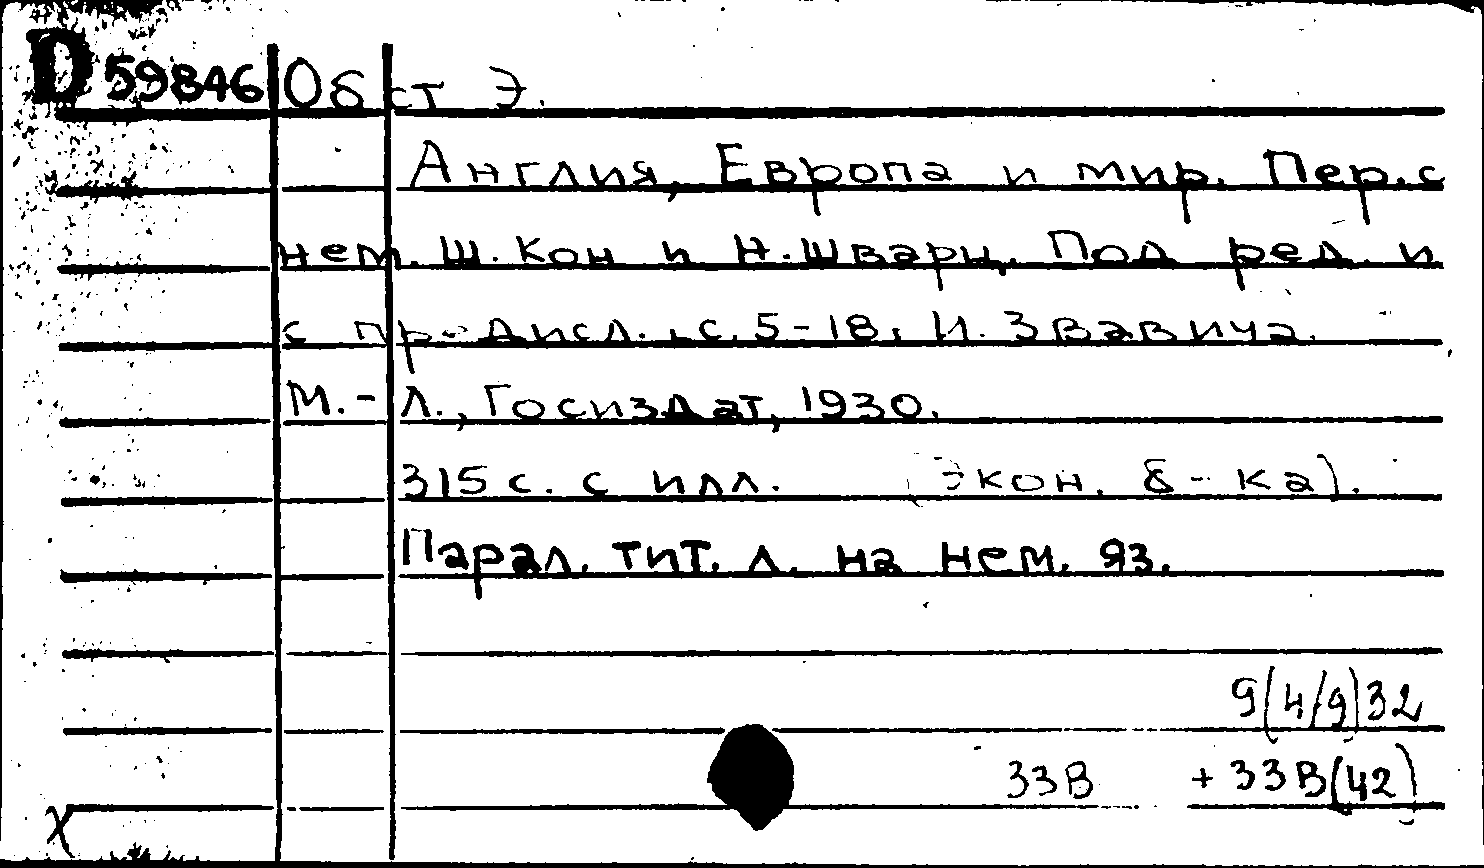 D 59846 Обст Э.
Англия, Европа и мир. Пер. с
нем. Ш. Кон и Н. Шварц. Под ред. и
с предисл., с. 5-18, И. Звавича.
М.-Л., Госиздат, 1930.
315 с. с илл. (Экон. б-ка).
Парал. тит. л. на нем. яз.
9(4/9)32
33В + 33В(42)
X